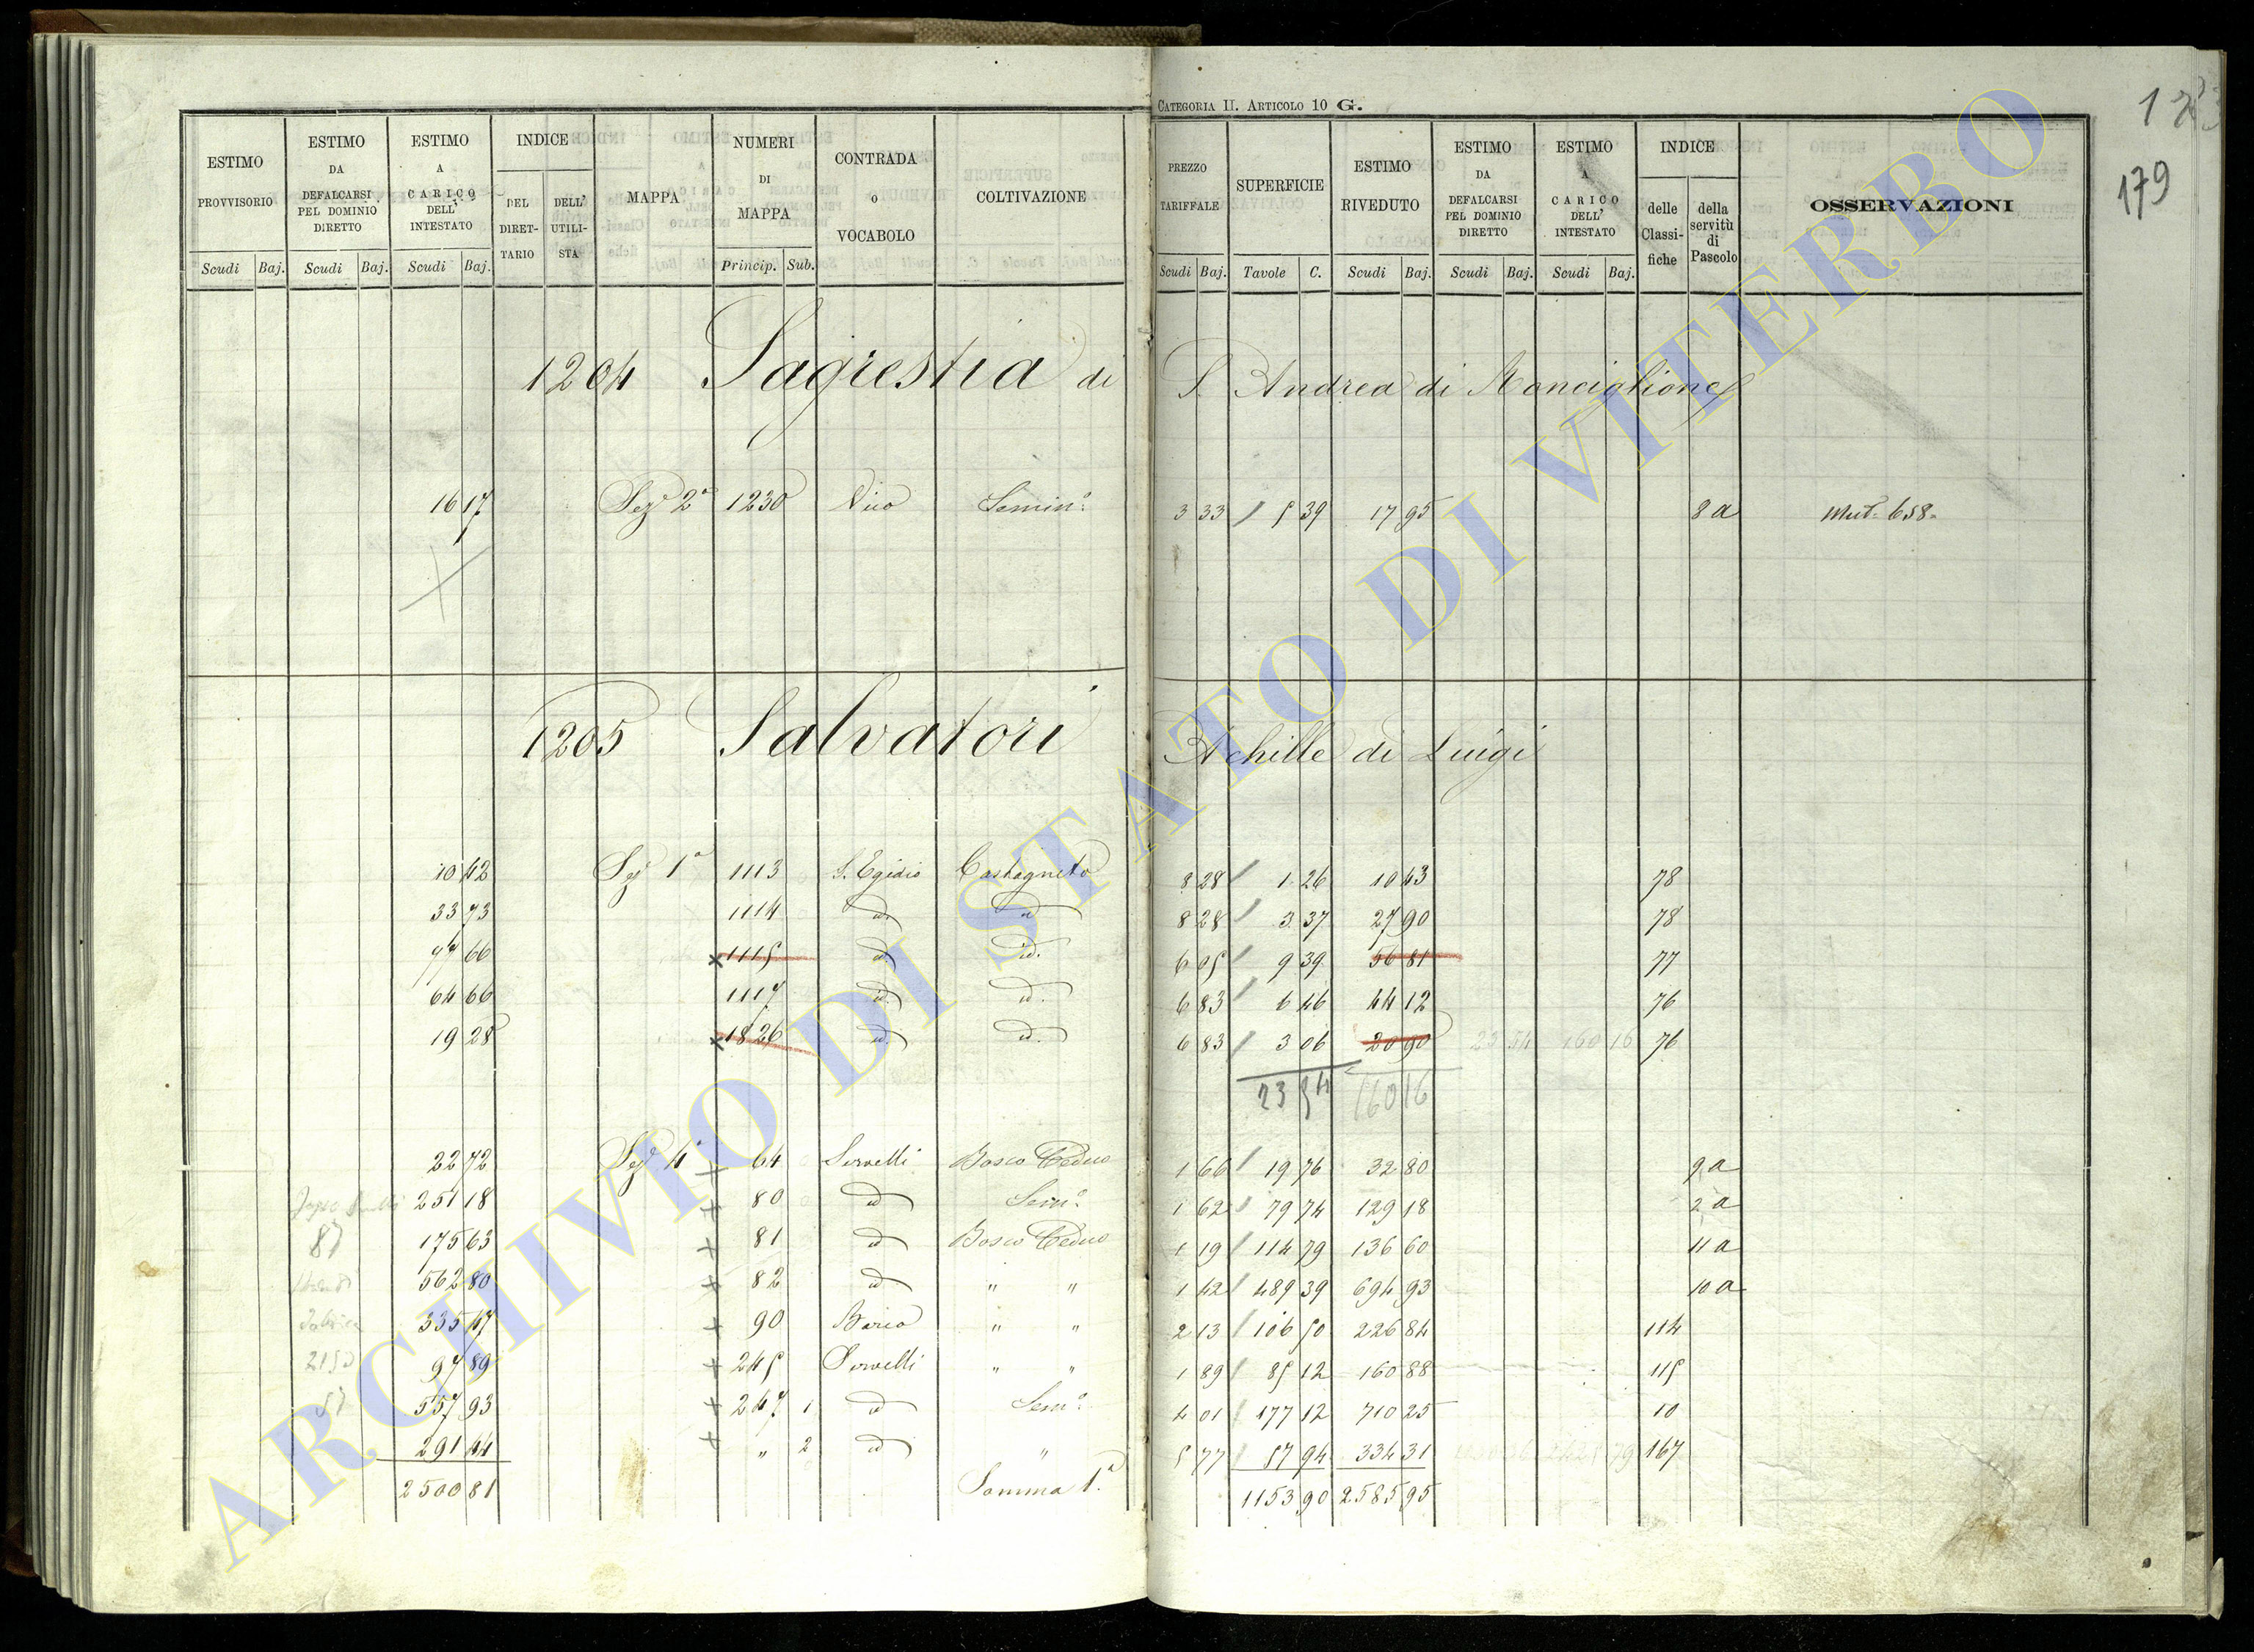 CATEGORIA II. ARTICOLO 10 G.
179
ESTIMO PROVVISORIO
ESTIMO DA DEFALCARSI PEL DOMINIO DIRETTO
ESTIMO A CARICO DELL' INTESTATO
INDICE
DEL DIRET-TARIO
DELL' UTILI-STA
MAPPA
NUMERI DI MAPPA
CONTRADA O VOCABOLO
COLTIVAZIONE
PREZZO TARIFFALE
SUPERFICIE
ESTIMO RIVEDUTO
ESTIMO DA DEFALCARSI PEL DOMINIO DIRETTO
ESTIMO A CARICO DELL' INTESTATO
INDICE
delle Classi-fiche
della servitù di Pascolo
OSSERVAZIONI
Scudi Baj. Scudi Baj. Scudi Baj. Princip. Sub. Scudi Baj. Tavole C. Scudi Baj. Scudi Baj. Scudi Baj.
1204 Sagrestia di S. Andrea di Ronciglione
16 17 Sez.e 2a 1230 Vico Semin.o 3 33 5 39 17 95 8 a Mut. 658
1205 Salvatori Achille di Luigi
10 42 Sez.e 1a 1113 S. Egidio Castagneto 8 28 1 26 10 43 78
33 73 1114 id. id. 8 28 3 37 27 90 78
77 66 x 1115 id. id. 6 05 9 39 56 81 77
64 66 1117 id. id. 6 83 6 46 44 12 76
19 28 x 1826 id. id. 6 83 3 06 20 90 23 54 160 16 76
23 54 160 16
22 72 Sez.e 4a + 64 Servelli Bosco Ceduo 1 66 19 76 32 80 9 a
251 18 + 80 id Sem.o 1 62 79 74 129 18 2 a
87 175 63 + 81 id Bosco Ceduo 1 19 114 79 136 60 11 a
562 80 + 82 id " " 1 42 489 39 694 93 10 a
335 47 + 90 " " 2 13 106 50 226 84 114
97 89 + 245 Servelli " " 1 89 85 12 160 88 115
557 93 + 247 1 id Sem.o 4 01 177 12 710 25 10
291 44 + " 2 id " 5 77 57 94 334 31 167
2500 81 Somma 1.a 1153 90 2585 95
ARCHIVIO DI STATO DI VITERBO